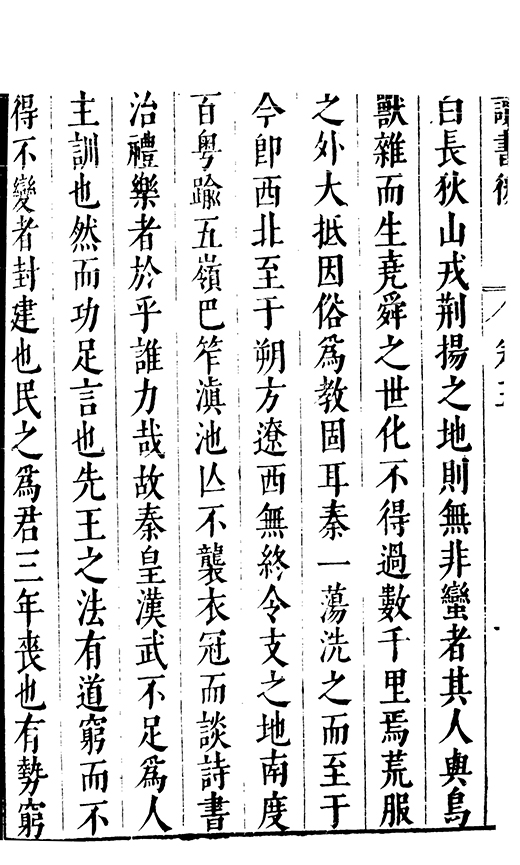 讀書後
卷五
白長狄山戎荆揚之地則無非蠻者其人與鳥
獸雜而生堯舜之世化不得過數千里焉荒服
之外大抵因俗爲教固耳秦一蕩洗之而至于
今卽西北至于朔方遼西無終令支之地南度
百粤踰五嶺巴笮滇池亾不襲衣冠而談詩書
治禮樂者於乎誰力哉故秦皇漢武不足爲人
主訓也然而功足言也先王之法有道窮而不
得不變者封建也民之爲君三年喪也有勢窮